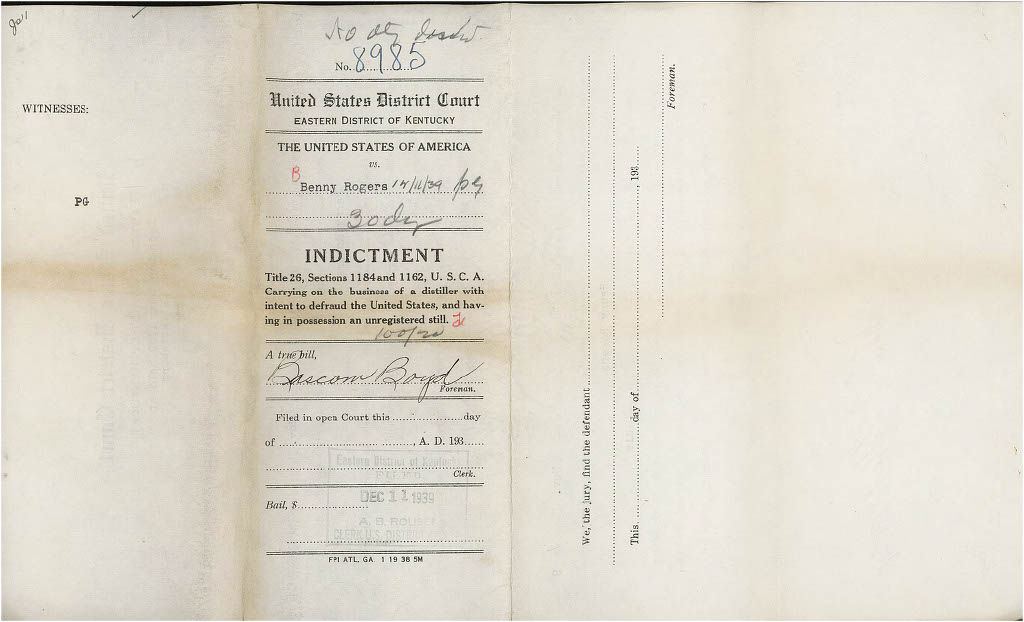 Jail
WITNESSES:
PG
No
No. 8985
United States District Court
EASTERN DISTRICT OF KENTUCKY
THE UNITED STATES OF AMERICA
vs.
B
Benny Rogers 12/11/39 pg
30 dy
INDICTMENT
Title 26, Sections 1184 and 1162, U. S. C. A.
Carrying on the business of a distiller with
intent to defraud the United States, and hav-
ing in possession an unregistered still.
100/20
A true bill,
Bascom Boyd
Foreman.
Filed in open Court this ..................... day
of ................................., A. D. 193......
Clerk.
Eastern District of Kentucky
DEC 11 1939
Bail, $
A. B. ROUSE
CLERK U.S. DISTRICT
FPI ATL, GA. 1 19 38 5M
We, the jury, find the defendant
This ............ day of ............, 193...
Foreman.